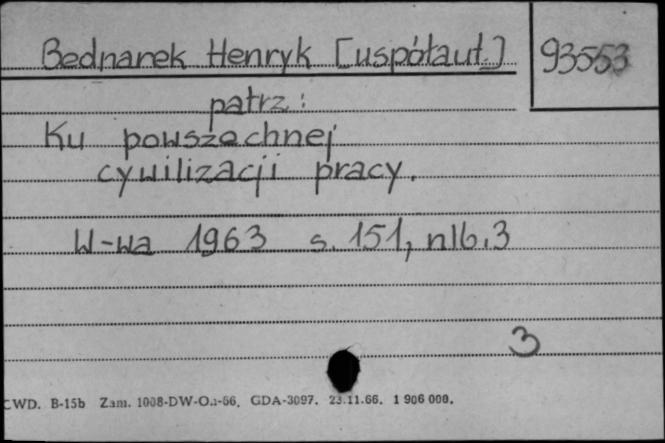 Bednarek Henryk [współaut.] 93553
patrz:
Ku powszechnej
cywilizacji pracy.
W-wa 1963 s. 151, nlb. 3
3
CWD. B-15b Zam. 1008-DW-O.i-66. GDA-3097. 23.11.66. 1 906 000.